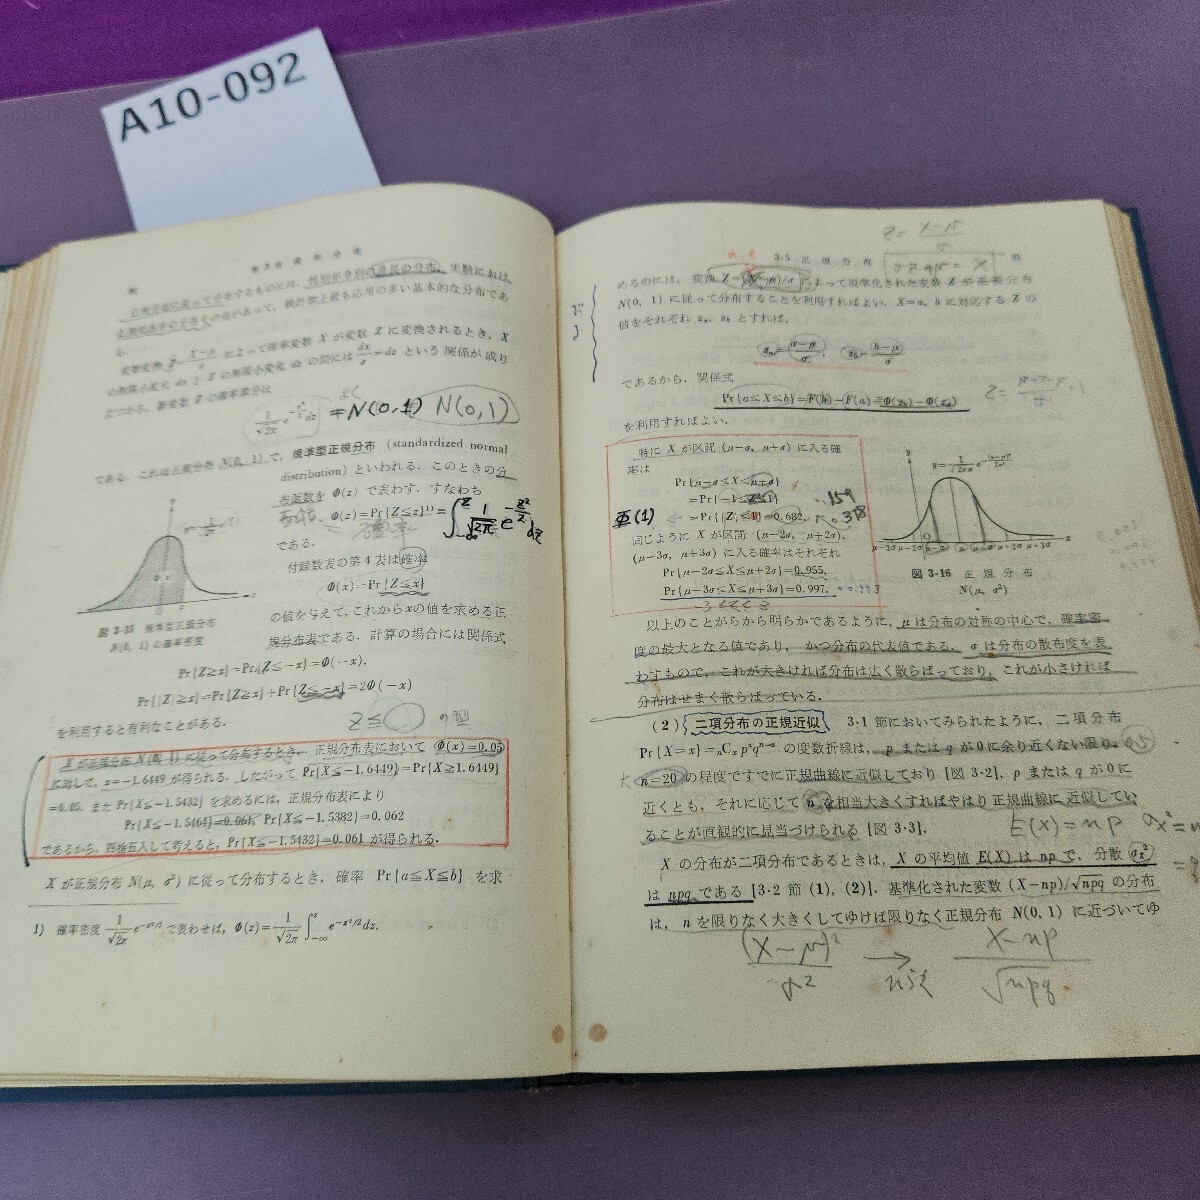 A10-092
第3章 確率分布
変数変換 Z=(X-μ)/σ によって確率変数 X が変数 Z に変換されるとき, X
の無限小変化 dx と Z の無限小変化 dz の間には dx/σ=dz という関係が成り
立つから, 新変数 Z の確率素分は
=N(0,1) N(0,1)
である. これは正規分布 N(0, 1) で, 標準型正規分布 (standardized normal
distribution) といわれる. このときの分
布函数を Φ(z) で表わす. すなわち
面積 Φ(z)=Pr{Z≦z}¹⁾ =∫_{-∞}^{z} 1/√2π e^{-z²/2}dz
確率
である.
付録数表の第4表は確率
Φ(x)=Pr{Z≦x}
の値を与えて, これからxの値を求める正
規分布表である. 計算の場合には関係式
図 3·15 標準型正規分布
N(0, 1) の確率密度
Pr{Z≧x}=Pr{Z≦-x}=Φ(-x),
Pr{|Z|≧x}=Pr{Z≧x}+Pr{Z≦-x}=2Φ(-x)
を利用すると有利なことがある.
Z≦ の型
X が正規分布 N(0, 1) に従って分布するとき, 正規分布表において Φ(x)=0.05
に対して, x=-1.6449 が得られる. したがって Pr{X≦-1.6449}=Pr{X≧1.6449}
=0.05. また Pr{X≦-1.5432} を求めるには, 正規分布表により
Pr{X≦-1.5464}=0.061, Pr{X≦-1.5382}=0.062
であるから, 四捨五入して考えると, Pr{X≦-1.5432}=0.061 が得られる.
X が正規分布 N(μ, σ²) に従って分布するとき, 確率 Pr{a≦X≦b} を求
1) 確率密度 1/√2π e^{-z²/2} で表わせば, Φ(z)=1/√2π ∫_{-∞}^{z} e^{-z²/2}dz.
Z= X-μ/σ
3·5 正規分布
σZ+μ=X
めるのには, 変換 Z=(X-μ)/σ によって規準化された変数 Z が正規分布
N(0, 1) に従って分布することを利用すればよい. X=a, b に対応する Z の
値をそれぞれ z_a, z_b とすれば,
z_a=(a-μ)/σ, z_b=(b-μ)/σ
であるから, 関係式
Pr{a≦X≦b}=F(b)-F(a)=Φ(z_b)-Φ(z_a)
を利用すればよい.
特に X が区間 (μ-σ, μ+σ) に入る確
率は
Pr{μ-σ≦X≦μ+σ}
=Pr{-1≦Z≦1} .159
Φ(1) =Pr{|Z|≦1}=0.682.
同じように X が区間 (μ-2σ, μ+2σ),
(μ-3σ, μ+3σ) に入る確率はそれぞれ
Pr{μ-2σ≦X≦μ+2σ}=0.955.
Pr{μ-3σ≦X≦μ+3σ}=0.997.
図 3·16 正規分布
N(μ, σ²)
以上のことがらから明らかであるように, μ は分布の対称の中心で, 確率密
度の最大となる値であり, かつ分布の代表値である. σ は分布の散布度を表
わすもので, これが大きければ分布は広く散らばっており, これが小さければ
分布はせまく散らばっている.
(2) 二項分布の正規近似 3·1 節においてみられたように, 二項分布
Pr{X=x}=ₙCₓ pˣqⁿ⁻ˣ の度数折線は, p または q が0に余り近くない限り,
n=20 の程度ですでに正規曲線に近似しており [図 3·2], p または q が0に
近くとも, それに応じて n を相当大きくすればやはり正規曲線に近似してい
ることが直観的に見当づけられる [図 3·3].
E(X)=np
X の分布が二項分布であるときは, X の平均値 E(X) は np で, 分散 σx²
は npq である [3·2 節 (1), (2)]. 基準化された変数 (X-np)/√npq の分布
は, n を限りなく大きくしてゆけば限りなく正規分布 N(0, 1) に近づいてゆ
(X-μ)²/σ² → X-np/√npq